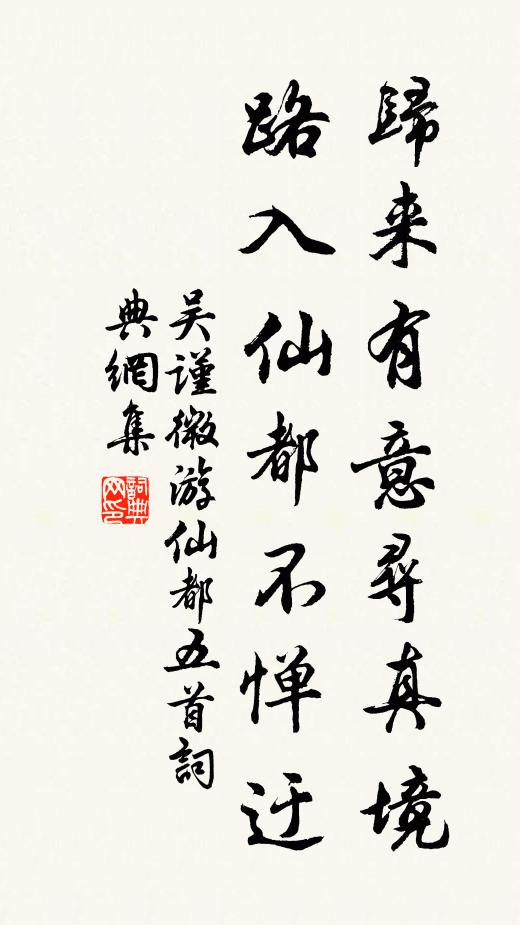 歸来有意尋真境
路入仙都不惮迂
吴謹微游仙都五首詞
典網集
詞典網印